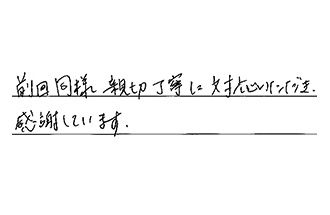 前回同様、親切丁寧に対応いただき、
感謝しています。